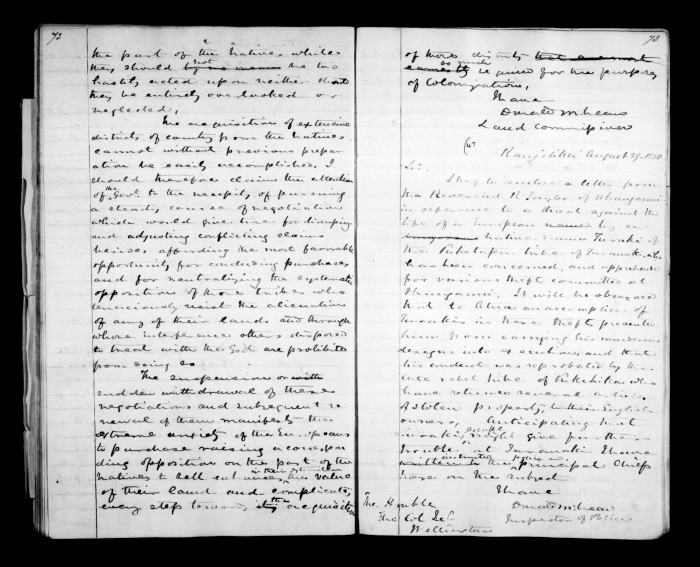 72
the part of the Natives whilst
they should not be too
hastily acted upon neither should
they be entirely overlooked or
neglected,
The acquisition of extensive
districts of country from the Natives
cannot without previous prepar
ation be easily accomplished, I
should therefore claim the attention
of the Govt. to the necessity of pursuing
a steady course of negotiation
which would give time for
and adjusting conflicting claims
besides affording the most favorable
opportunity for concluding purchases
and for neutralizing the systematic
opposition of those tribes who
tenaciously resist the alienation
of any of their lands and through
whose interference others disposed
to treat with the Govt are prohibited
from doing so
The suspension or with
sudden withdrawal of these
negotiations and subsequent re
newal of them manifests the
extreme anxiety of the Europeans
to purchase raising a correspon
ding opposition on the part of the
Natives to sell enhances in their estimation the value
of their land and complicates
every step towards its the acquisition
73
of those districts that are most
earnestly as much required for the purposes
of Colonization,
I have
Donald McLean
Land Commissioner
Rangitikei August 29. 1850
Sir.
I beg to enclose a letter from
the Reverend R Taylor of Whanganui
in reference to a threat against the
life of a European named by a
native named Turaki of
the tribe of Taranaki, who
has been concerned, and apprehended
for various theft committed at
Whanganui. It will be observed
that
in these theft prevented
him from carrying his murderous
designs into execution, and that
his conduct was reprobated by the
late rebel tribe of who
have returned several articles
of stolen property, to their English
owners, Anticipating that
escape might give further
trouble at Taranaki I have
written to the principal Chiefs
here on the subject
I have
Donald McLean
Inspector of Police
The Honble
The Col Sec
Wellington